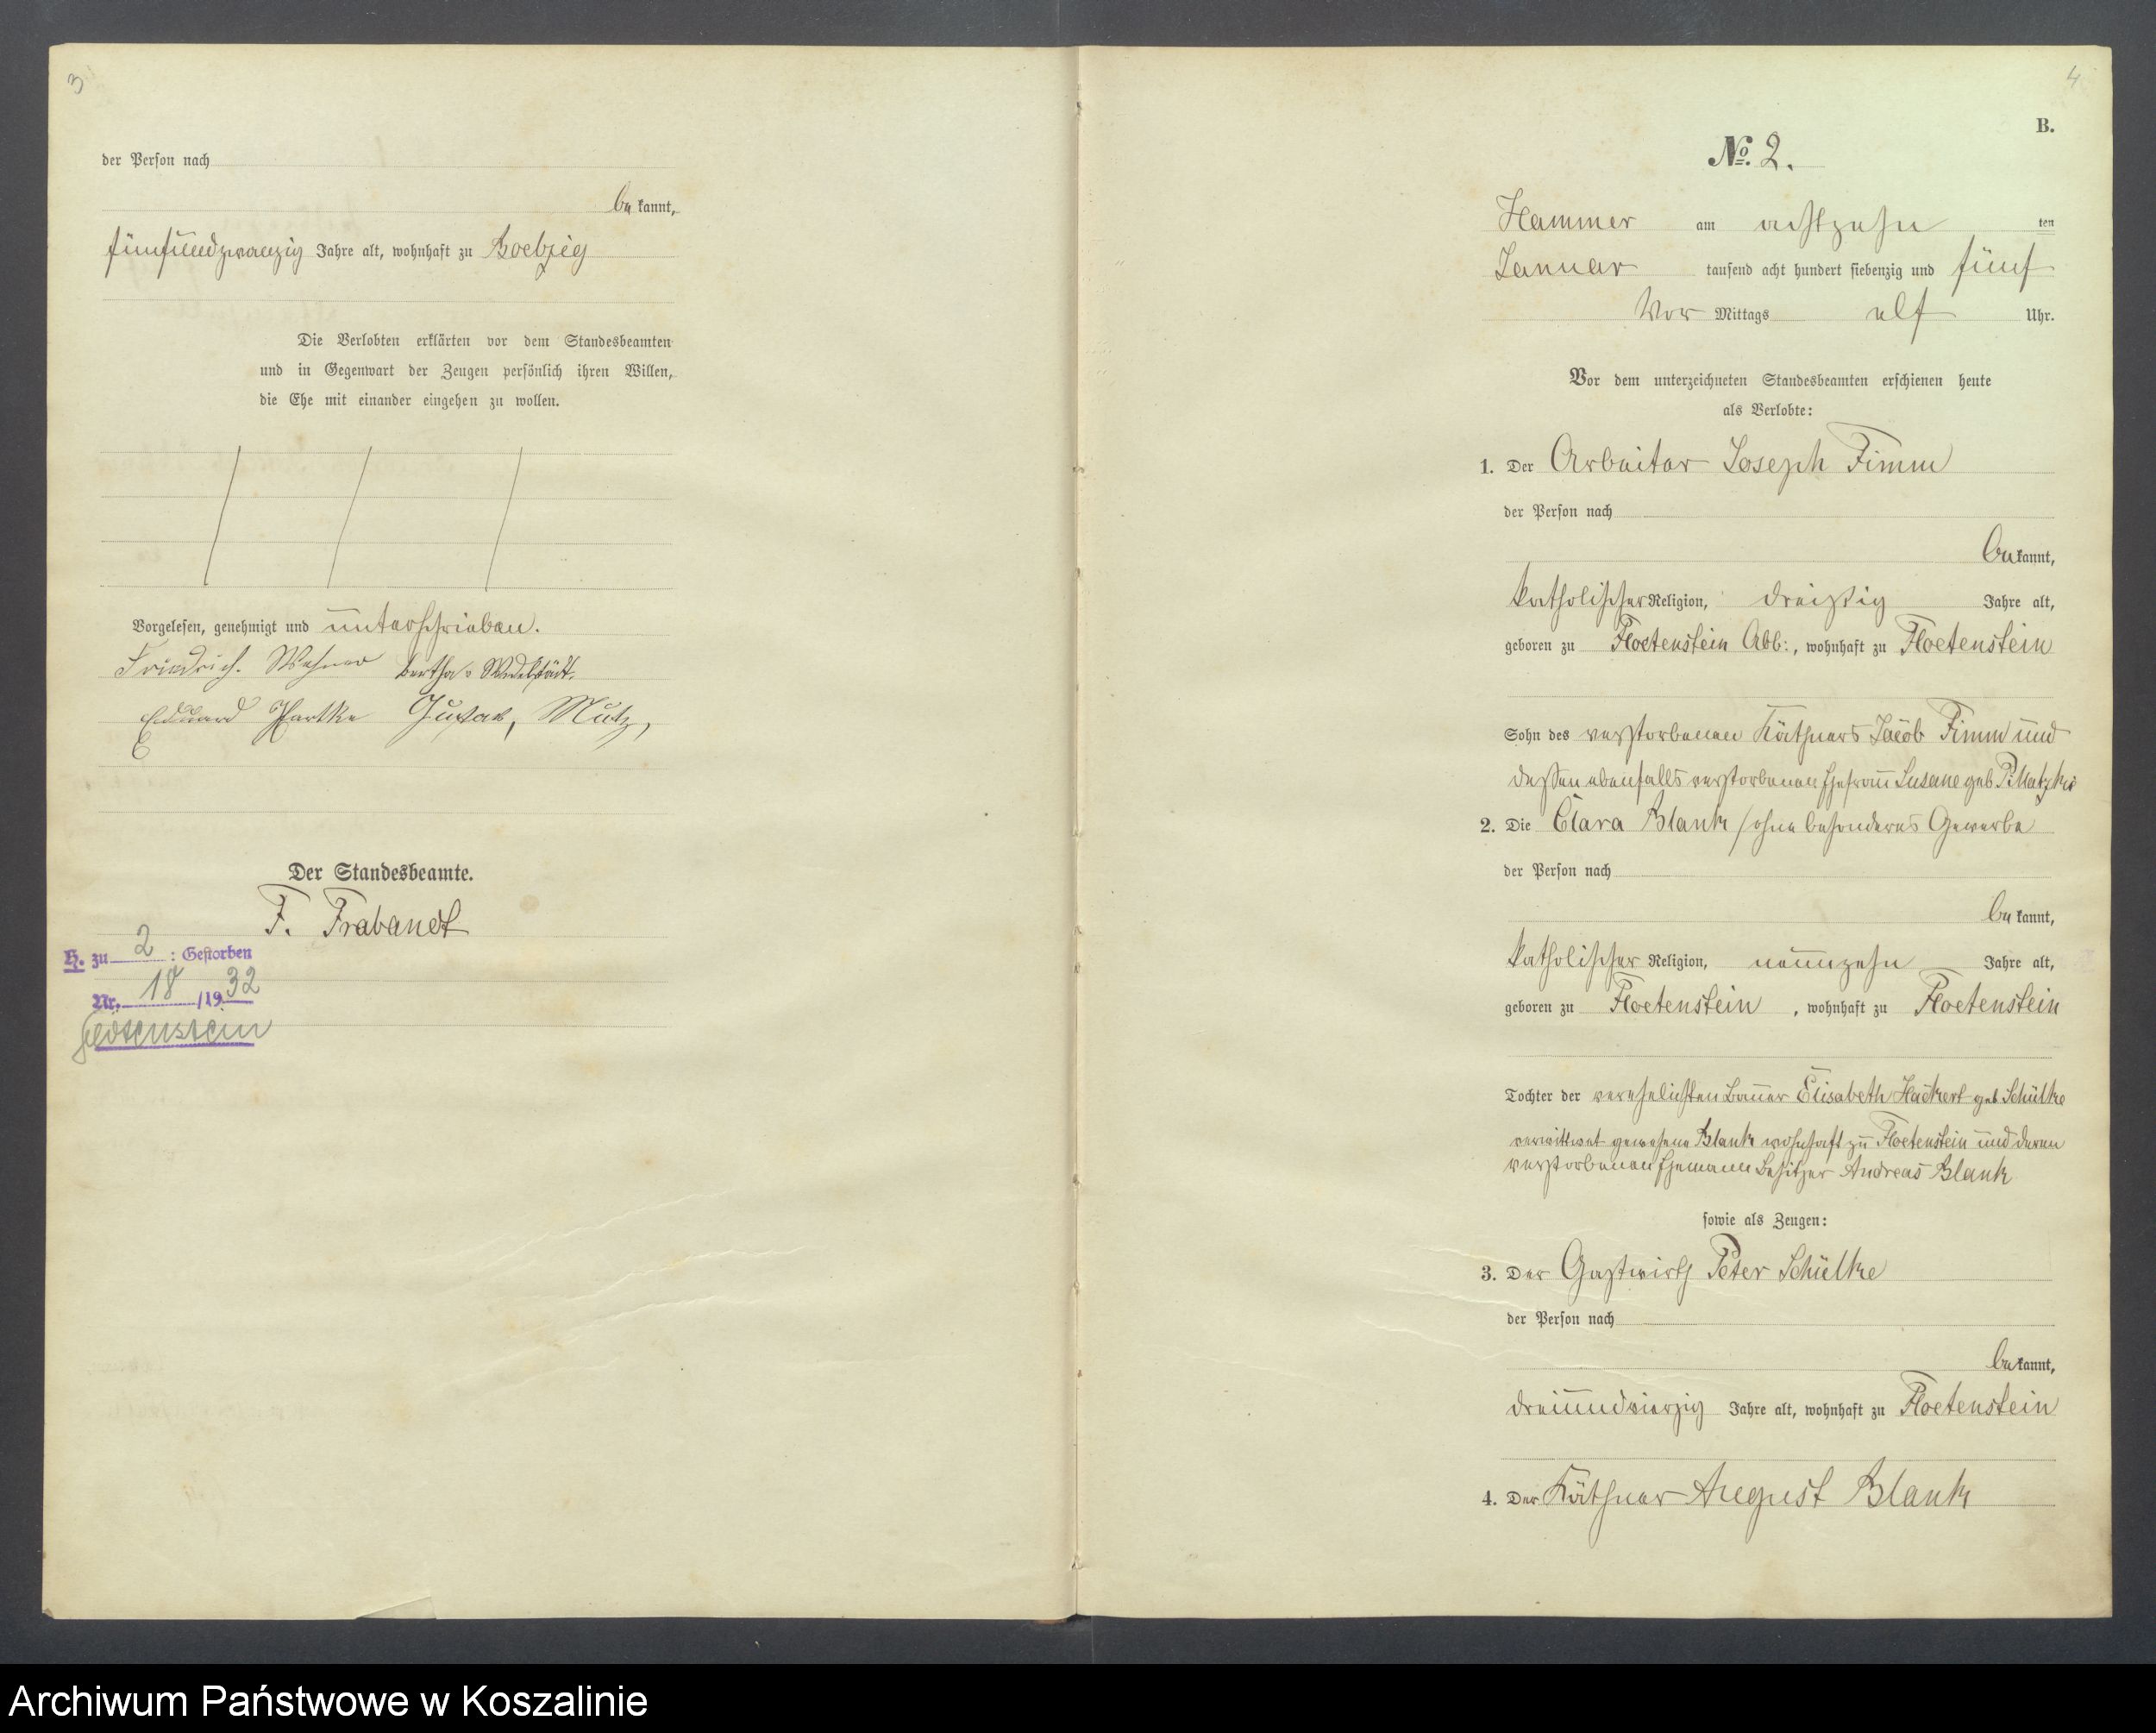 3
der Person nach
bekannt,
fünfundzwanzig Jahre alt, wohnhaft zu Boelzig
Die Verlobten erklärten vor dem Standesbeamten
und in Gegenwart der Zeugen persönlich ihren Willen,
die Ehe mit einander eingehen zu wollen.
Vorgelesen, genehmigt und unterschrieben.
Friedrich. Wehner Bertha
Eduard Hartke Gustav, Mutz,
Der Standesbeamte.
F. Trabandt
H. zu 2 : Gestorben
Nr. 18 /1932
Flötenstein
4
B.
No. 2.
Hammer am achtzehn ten
Januar tausend acht hundert siebenzig und fünf
Vor Mittags elf Uhr.
Vor dem unterzeichneten Standesbeamten erschienen heute
als Verlobte:
1. Der Arbeiter Joseph Timm
der Person nach
bekannt,
katholischer Religion, dreißig Jahre alt,
geboren zu Floetenstein Abb:, wohnhaft zu Floetenstein
Sohn des verstorbenen Käthners Jacob Timm und
dessen ebenfalls verstorbenen Ehefrau Susane geb
2. Die Clara Blank / ohne besonderes Gewerbe
der Person nach
bekannt,
katholischer Religion, neunzehn Jahre alt,
geboren zu Floetenstein, wohnhaft zu Floetenstein
Tochter der verehelichten Bauer Elisabeth Hackert geb Schülke
verwittwet gewesene Blank wohnhaft zu Floetenstein und deren
verstorbenen Ehemann Besitzer Andreas Blank
sowie als Zeugen:
3. Der Gastwirth Peter Schülke
der Person nach
bekannt,
dreiundvierzig Jahre alt, wohnhaft zu Floetenstein
4. Der Käthner August Blank
Archiwum Państwowe w Koszalinie